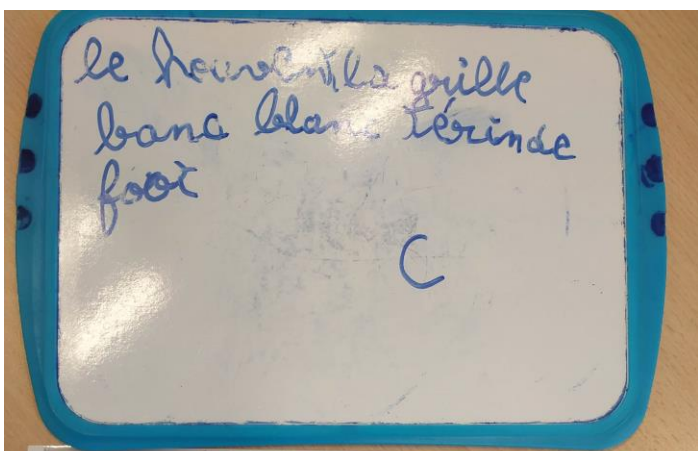 le la grille
banc blanc térinde
foot
C